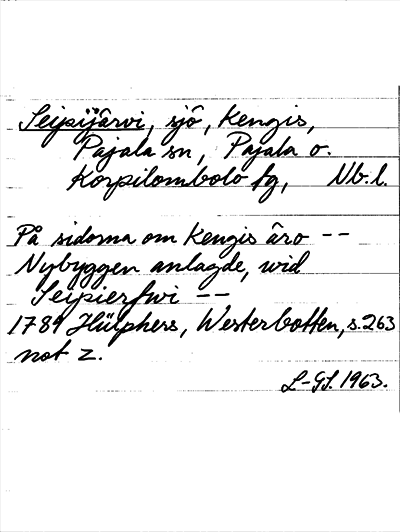 Seipijärvi, sjö, Kengis,
Pajala sn, Pajala o.
Korpilombolo fg, Nb.l.
På sidorna om Kengis äro --
Nybyggen anlagde, wid
Seipierfwi --
1789 Hülphers, Westerbotten, s. 263
not z.
L-GL. 1963.